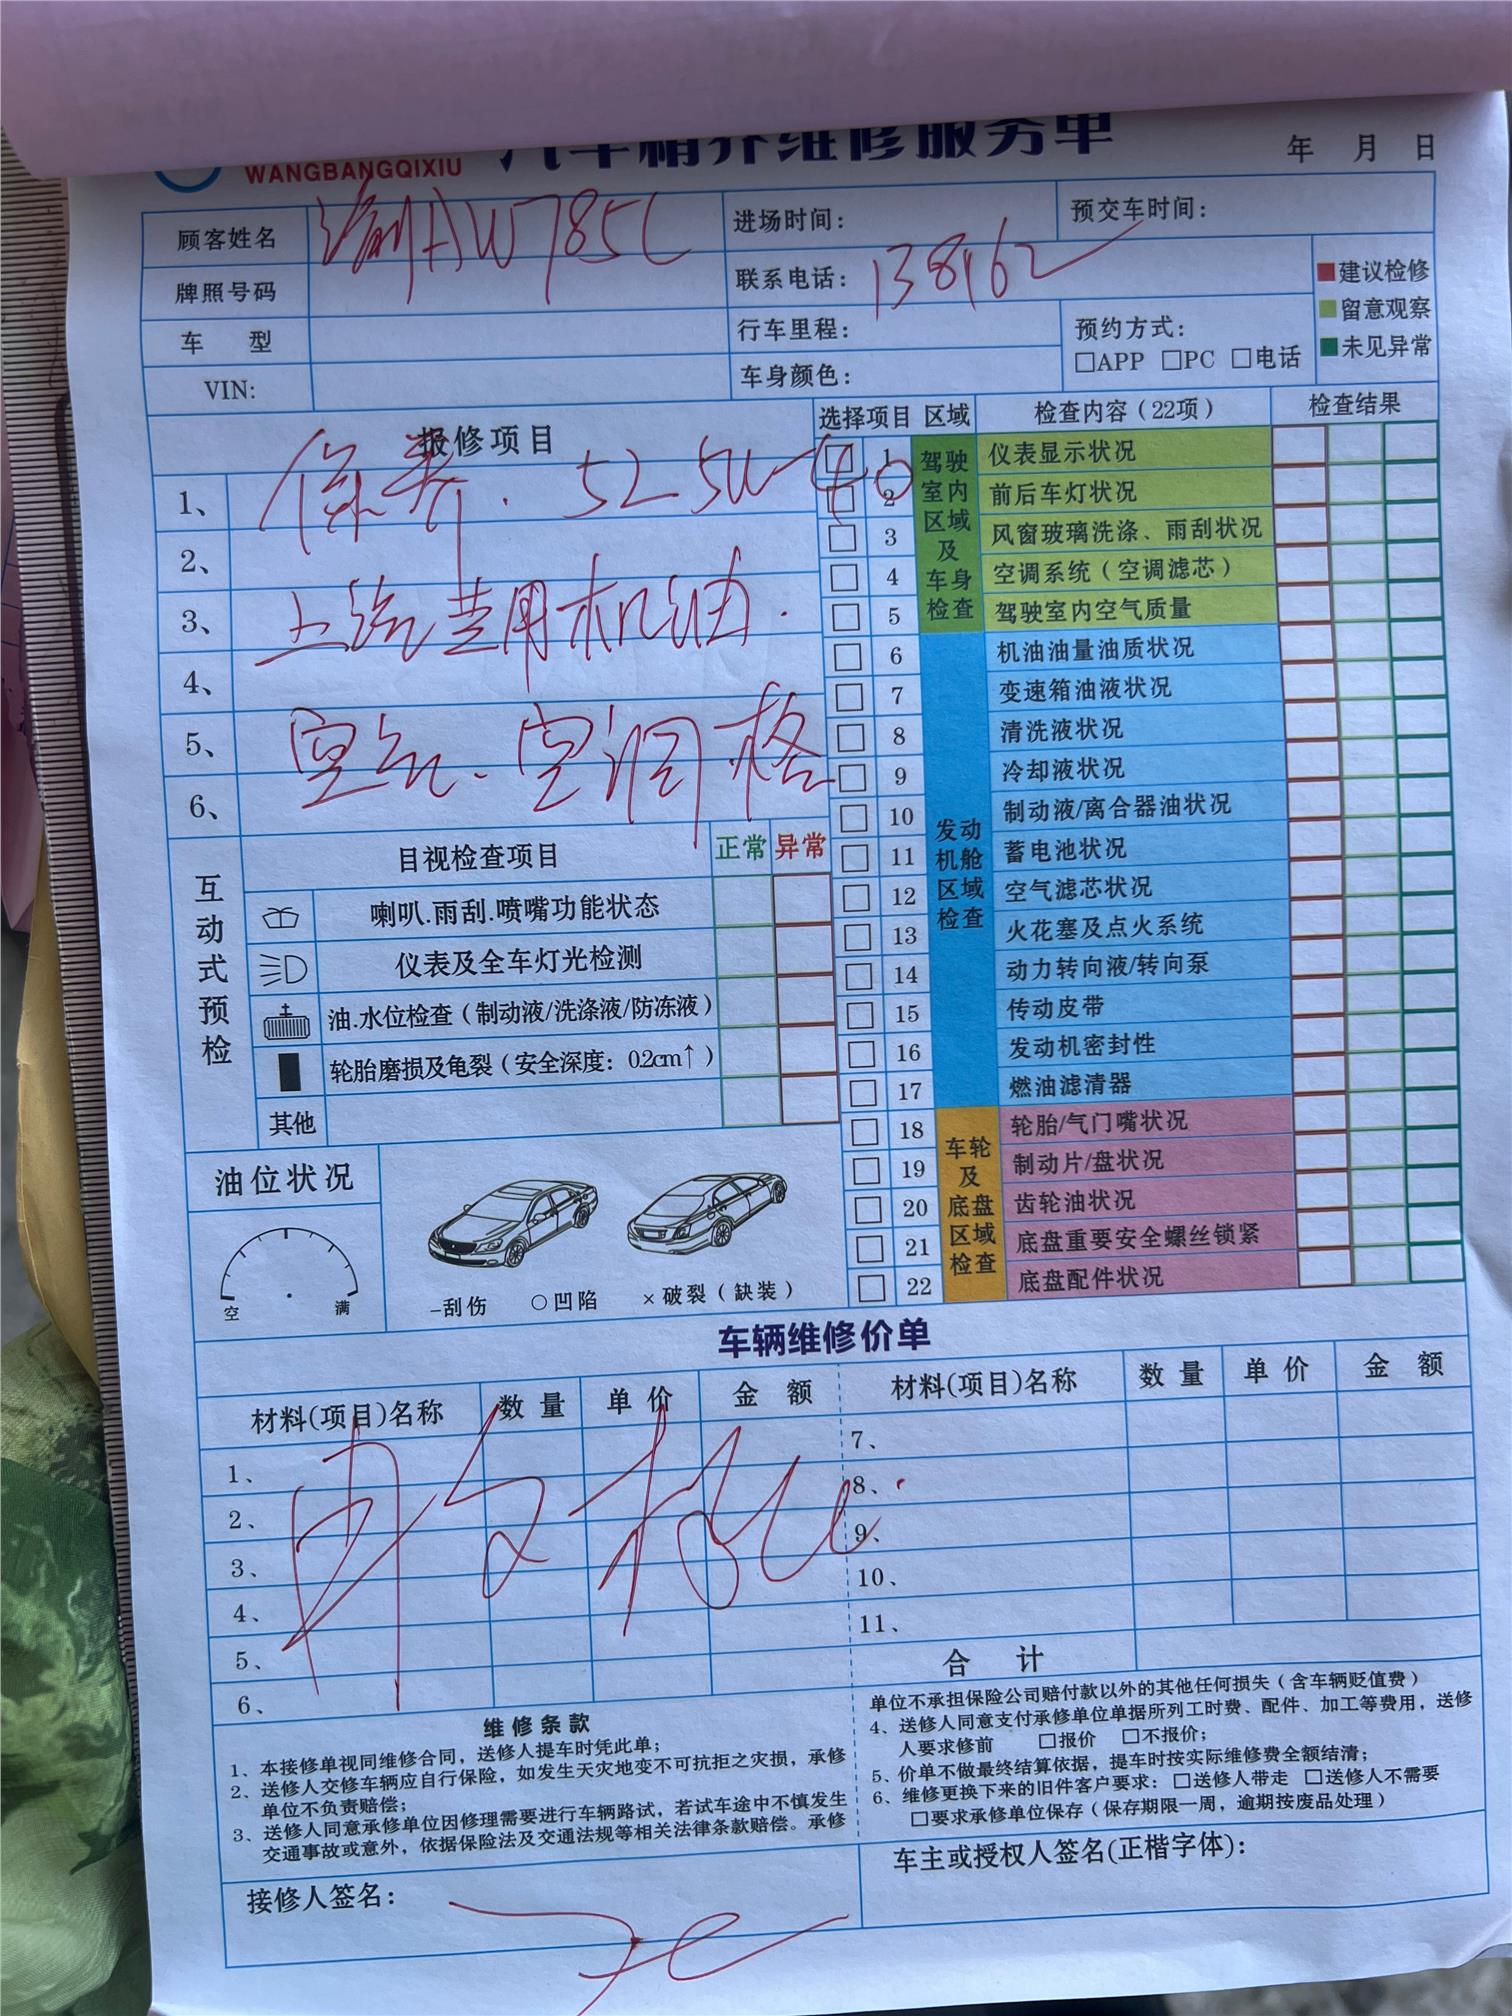 WANGBANGQIXIU 汽车精养维修服务单 年 月 日
顾客姓名 渝AW785L 进场时间: 预交车时间:
牌照号码 联系电话: 138162
车 型 行车里程: 预约方式:
□APP □PC □电话
VIN: 车身颜色:
建议检修
留意观察
未见异常
报修项目
1、 保养. 52 5W-40
2、
3、 上汽专用机油.
4、
5、 空气、空调格
6、
选择项目 区域 检查内容(22项) 检查结果
驾驶室内区域及车身检查
1 仪表显示状况
2 前后车灯状况
3 风窗玻璃洗涤、雨刮状况
4 空调系统(空调滤芯)
5 驾驶室内空气质量
发动机舱区域检查
6 机油油量油质状况
7 变速箱油液状况
8 清洗液状况
9 冷却液状况
10 制动液/离合器油状况
11 蓄电池状况
12 空气滤芯状况
13 火花塞及点火系统
14 动力转向液/转向泵
15 传动皮带
16 发动机密封性
17 燃油滤清器
车轮及底盘区域检查
18 轮胎/气门嘴状况
19 制动片/盘状况
20 齿轮油状况
21 底盘重要安全螺丝锁紧
22 底盘配件状况
互动式预检
目视检查项目 正常 异常
喇叭.雨刮.喷嘴功能状态
仪表及全车灯光检测
油.水位检查(制动液/洗涤液/防冻液)
轮胎磨损及龟裂(安全深度: 0.2cm↑)
其他
油位状况
空 满
-刮伤 ○凹陷 ×破裂(缺装)
车辆维修价单
材料(项目)名称 数量 单价 金 额 材料(项目)名称 数量 单价 金 额
1、 7、
2、 8、
3、 9、
4、 10、
5、 11、
6、 合 计
维修条款
1、本接修单视同维修合同,送修人提车时凭此单;
2、送修人交修车辆应自行保险,如发生天灾地变不可抗拒之灾损,承修
单位不负责赔偿;
3、送修人同意承修单位因修理需要进行车辆路试,若试车途中不慎发生
交通事故或意外,依据保险法及交通法规等相关法律条款赔偿。承修
单位不承担保险公司赔付款以外的其他任何损失(含车辆贬值费)
4、送修人同意支付承修单位单据所列工时费、配件、加工等费用,送修
人要求修前 □报价 □不报价;
5、价单不做最终结算依据,提车时按实际维修费全额结清;
6、维修更换下来的旧件客户要求: □送修人带走 □送修人不需要
□要求承修单位保存(保存期限一周,逾期按废品处理)
接修人签名:
车主或授权人签名(正楷字体):